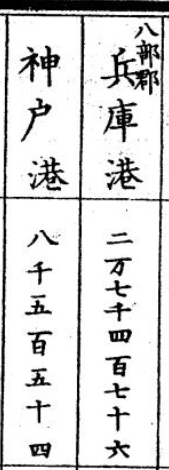 八部郡
兵庫港
二万七千四百七十六
神戸港
八千五百五十四